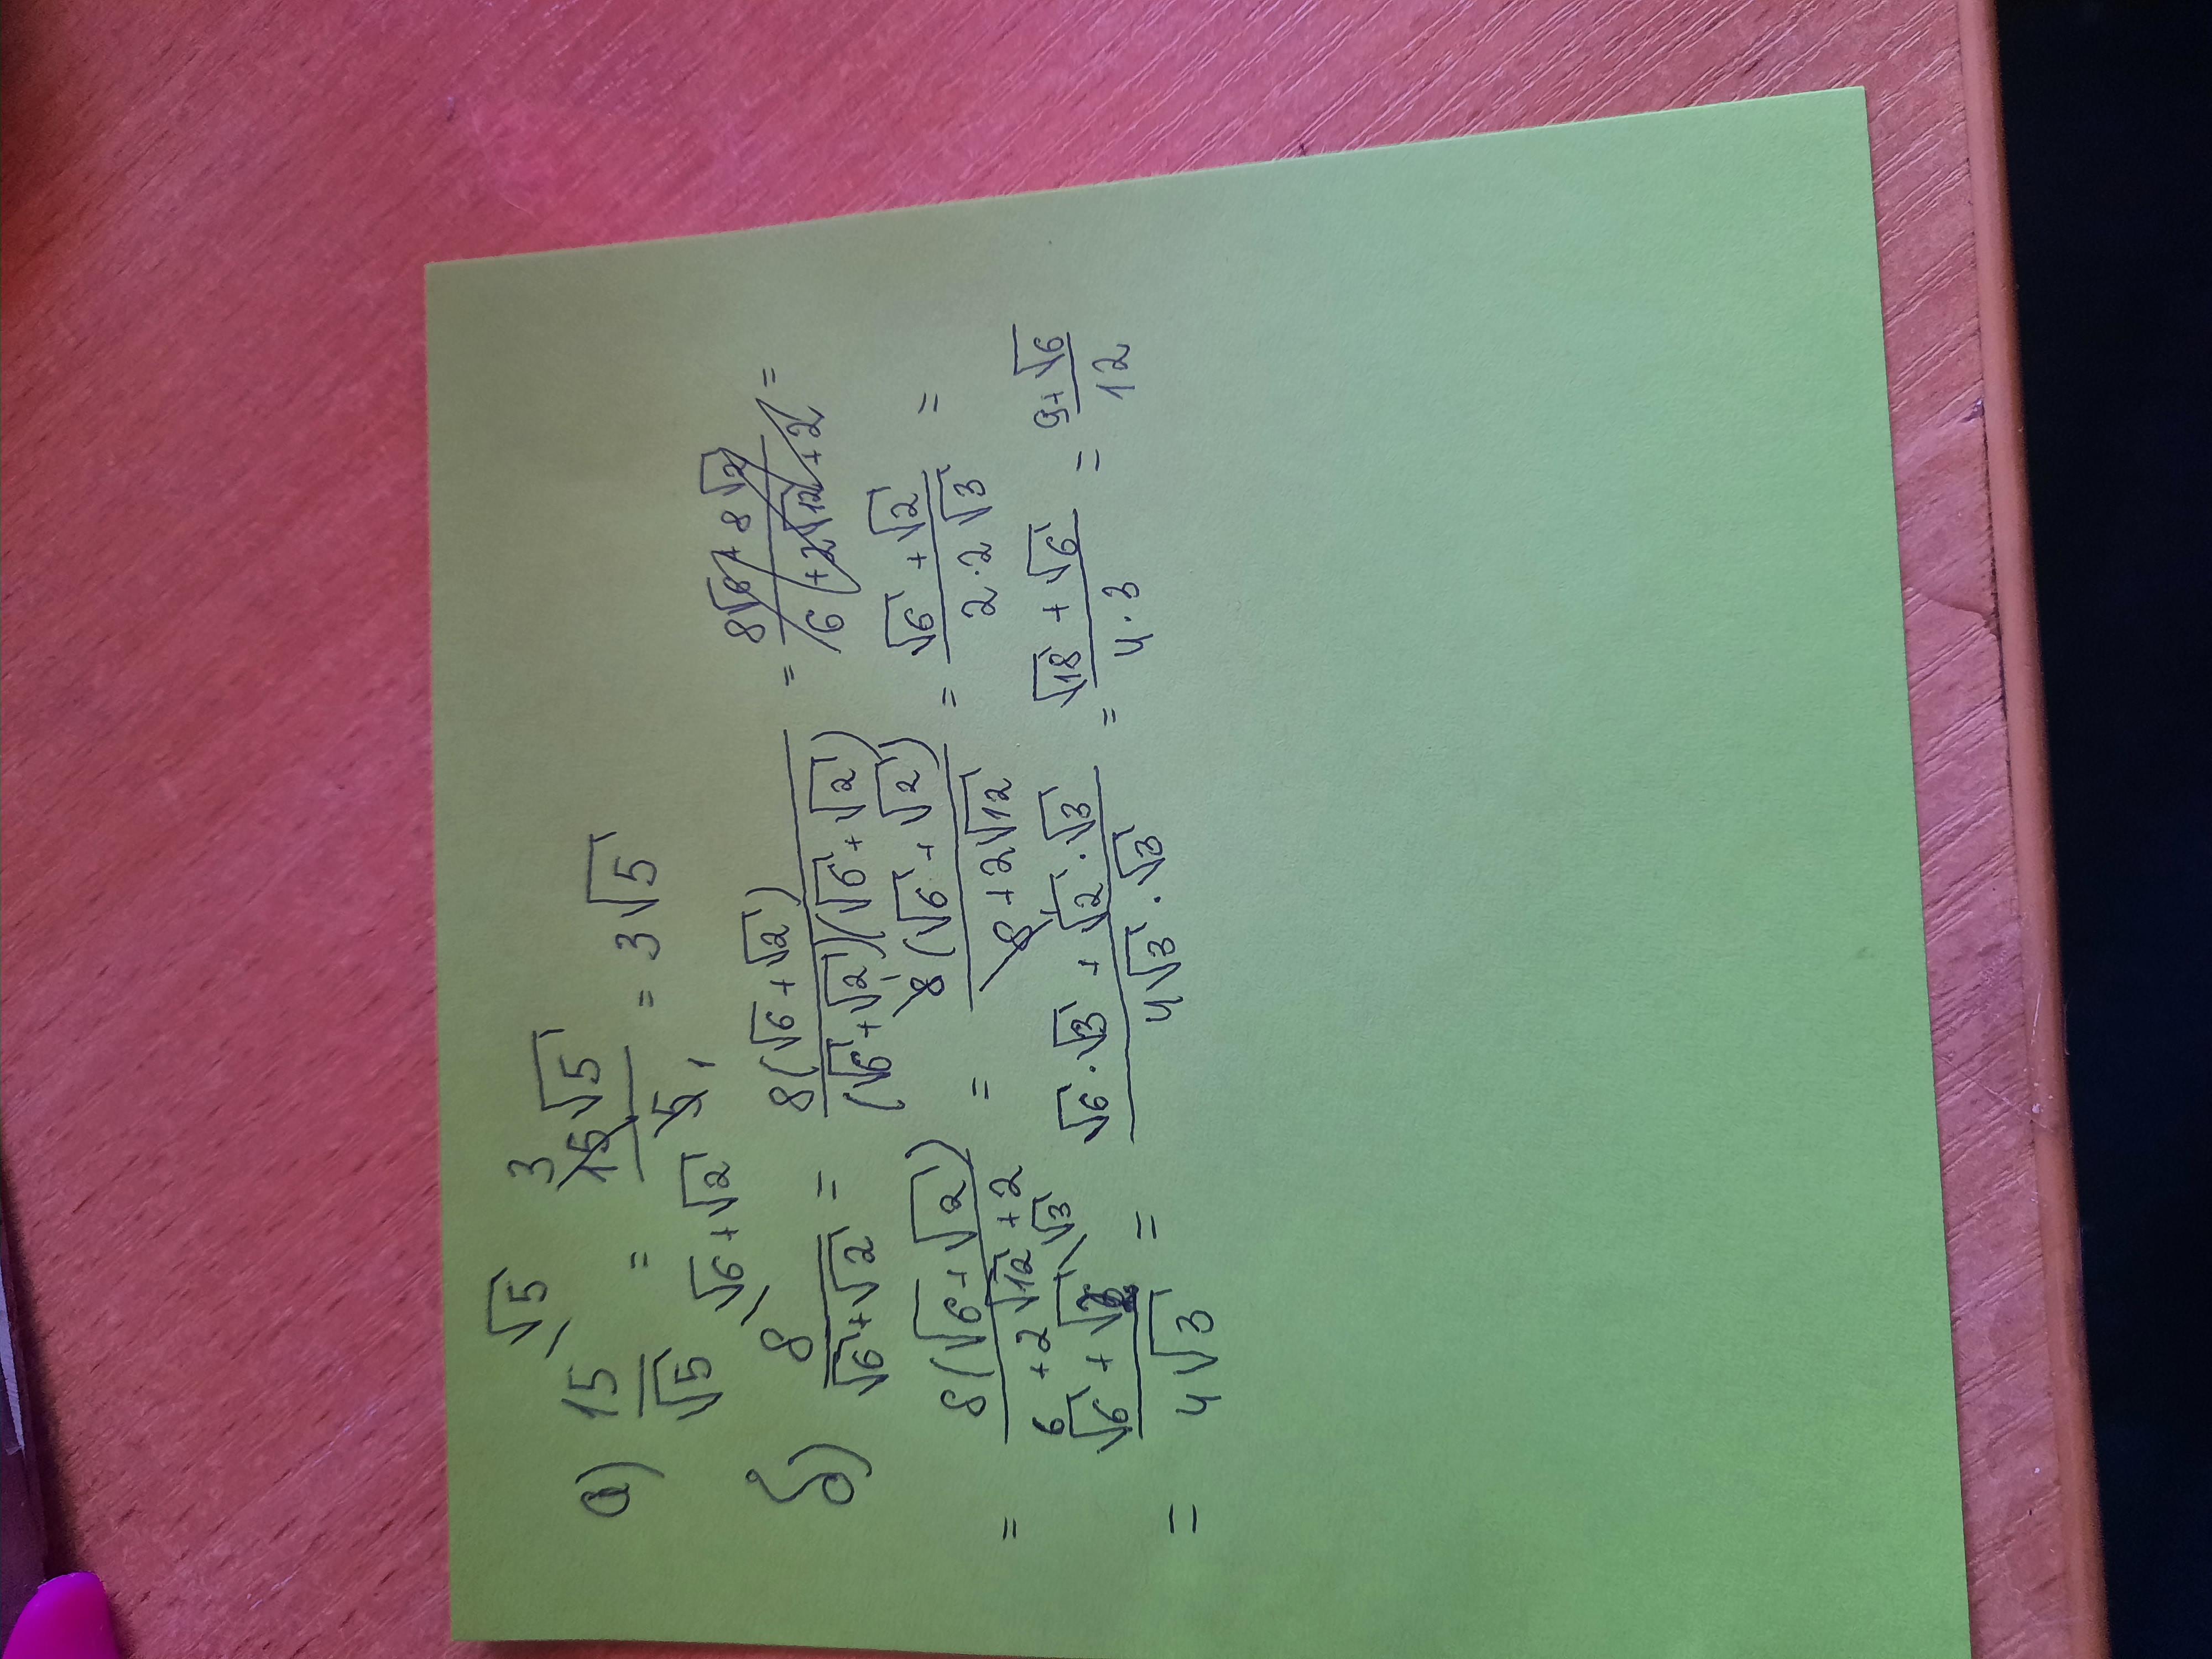 а) 15/√5 \√5 = 15√5/5 = 3√5
б) 8/(√6+√2) \√6+√2 = 8(√6+√2)/((√6+√2)(√6+√2)) = 8√6+8√2/6+2√12+2 =
= 8(√6+√2)/(6+2√12+2) = 8(√6+√2)/(8+2√12) = (√6+√2)/(2·2√3) =
= (√6+√2)/(4√3) \√3 = (√6·√3+√2·√3)/(4√3·√3) = (√18+√6)/(4·3) = (9+√6)/12